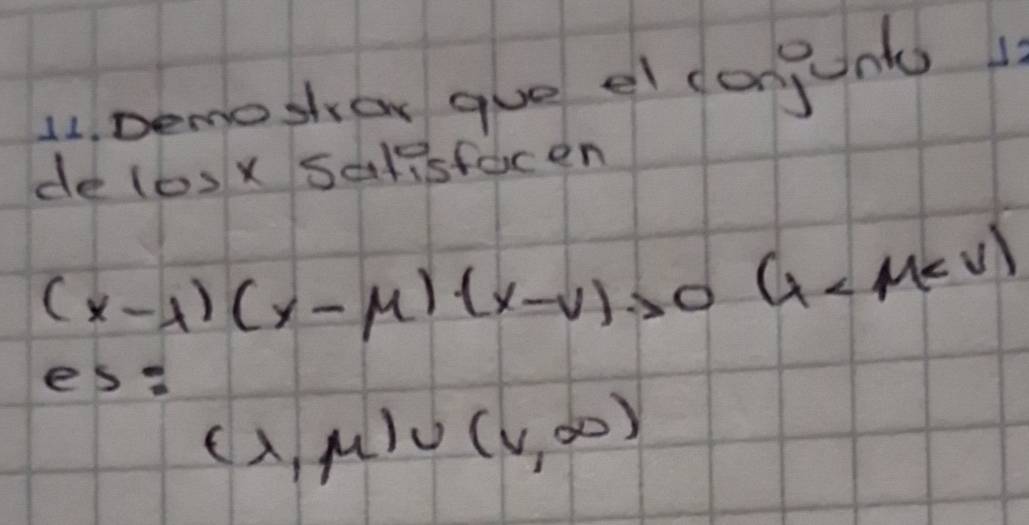 11. Demostrar que el conjunto
de los x satisfacen
(x-λ)(x-μ)(x-ν)>0 (λ<μ<ν)
es:
(λ,μ)∪(ν,∞)